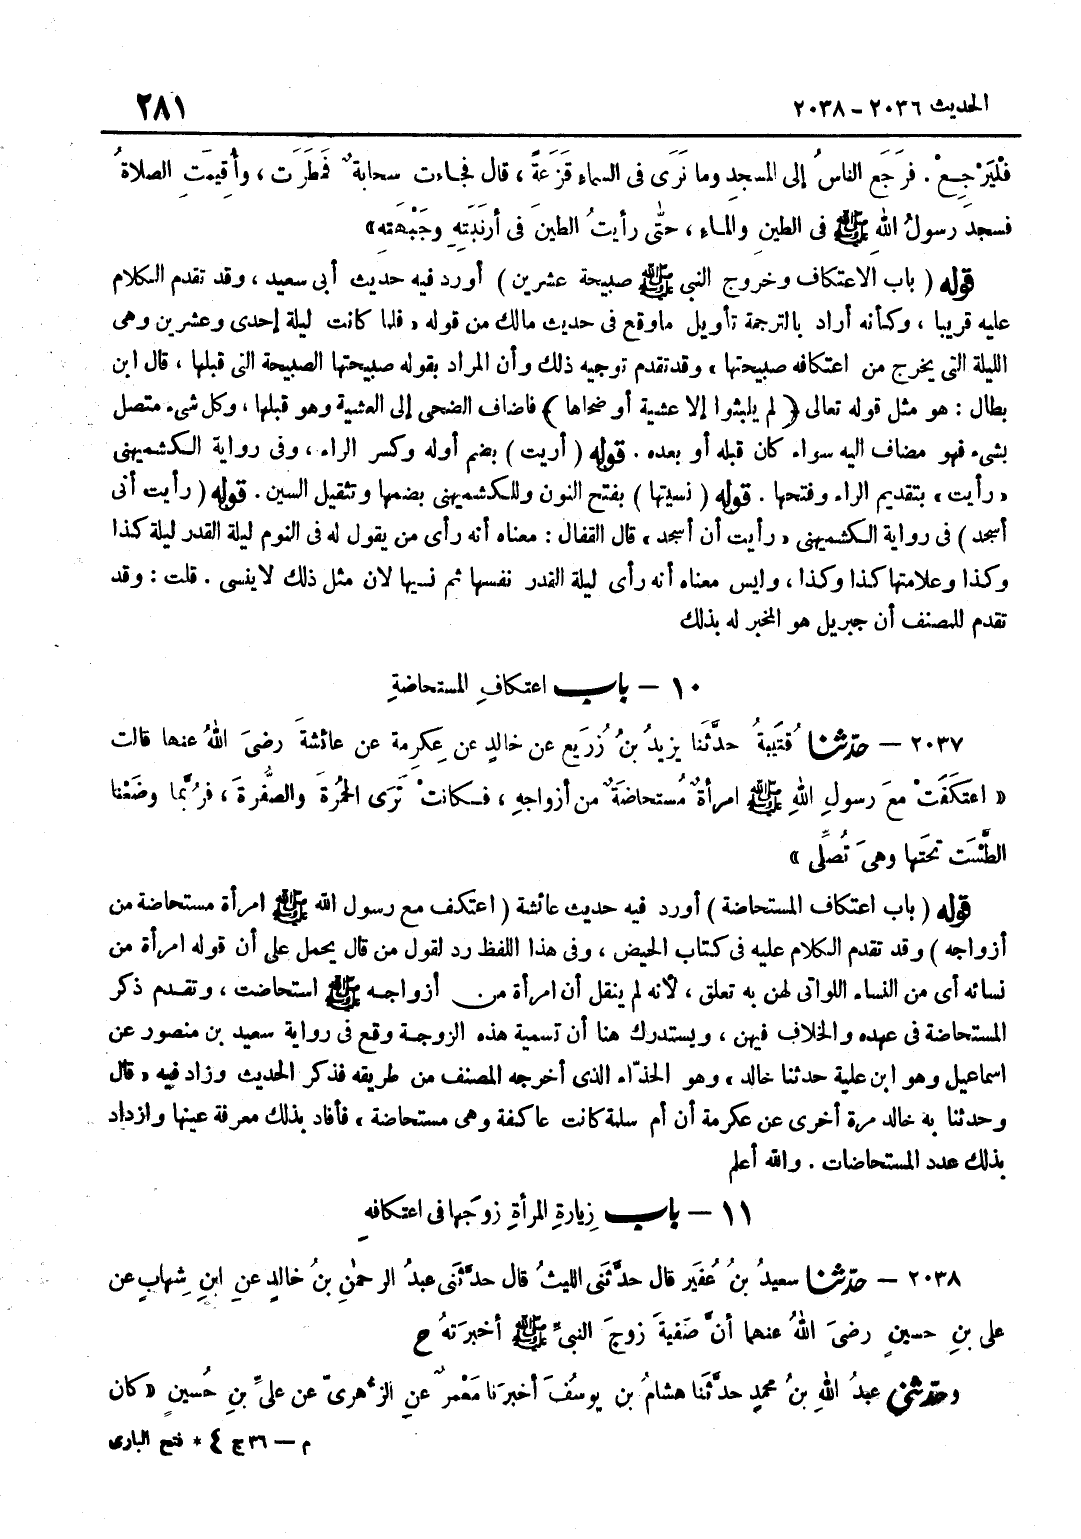 الحديث ٢٠٣٦ – ٢٠٣٨
٢٨١
فلْيَرْجِعْ . فرَجَع الناسُ إلى المسجدِ وما نَرَى فى السماءِ قزَعةً ، قال فجاءت سحابةٌ فمطَرَت ، وأُقيمَتِ الصلاةُ
فسجدَ رسولُ اللهِ ﷺ فى الطينِ والماءِ ، حتّى رأيتُ الطينَ فى أرنَبَتِهِ وجَبْهتهِ»
قوله ( باب الاعتكاف وخروج النبى ﷺ صبيحة عشرين ) أورد فيه حديث أبى سعيد ، وقد تقدم الكلام
عليه قريبا ، وكأنه أراد بالترجمة تأويل ماوقع فى حديث مالك من قوله « فلما كانت ليلة إحدى وعشرين وهى
الليلة التى يخرج من اعتكافه صبيحتها » وقدتقدم توجيه ذلك وأن المراد بقوله صبيحتها الصبيحة التى قبلها ، قال ابن
بطال : هو مثل قوله تعالى ﴿ لم يلبثوا إلا عشية أو ضحاها ﴾ فاضاف الضحى إلى العشية وهو قبلها ، وكل شىء متصل
بشىء فهو مضاف اليه سواء كان قبله أو بعده . قوله ( أريت ) بضم أوله وكسر الراء ، وفى رواية الكشميهنى
« رأيت » بتقديم الراء وفتحها . قوله ( نسيتها ) بفتح النون وللكشميهنى بضمها وتثقيل السين . قوله ( رأيت أنى
أسجد ) فى رواية الكشميهنى « رأيت أن أسجد » قال القفال : معناه أنه رأى من يقول له فى النوم ليلة القدر ليلة كذا
وكذا وعلامتها كذا وكذا ، وايس معناه أنه رأى ليلة القدر نفسها ثم نسيها لان مثل ذلك لاينسى . قلت : وقد
تقدم للمصنف أن جبريل هو المخبر له بذلك
١٠ – باب اعتكافِ المستحاضةِ
٢٠٣٧ – حدّثنا قُتَيبةُ حدَّثَنا يزيدُ بنُ زُرَيع عن خالدٍ عن عِكرِمة عن عائشةَ رضىَ اللهُ عنها قالت
« اعتكَفَتْ معَ رسولِ اللهِ ﷺ امرأةٌ مُستحاضةٌ من أزواجهِ ، فكانتْ تَرَى الحُمرةَ والصُّفرةَ ، فرُبَّما وضَعْنا
الطَّسْتَ تحتَها وهىَ تُصلِّى »
قوله ( باب اعتكاف المستحاضة ) أورد فيه حديث عائشة ( اعتكف مع رسول الله ﷺ امرأة مستحاضة من
أزواجه ) وقد تقدم الكلام عليه فى كتاب الحيض ، وفى هذا اللفظ رد لقول من قال يحمل على أن قوله امرأة من
نسائه أى من النساء اللواتى لهن به تعلق ، لأنه لم ينقل أن امرأة من أزواجه ﷺ استحاضت ، وتقدم ذكر
المستحاضة فى عهده والخلاف فيهن ، ويستدرك هنا أن تسمية هذه الزوجة وقع فى رواية سعيد بن منصور عن
اسماعيل وهو ابن علية حدثنا خالد » وهو الحذّاء الذى أخرجه المصنف من طريقه فذكر الحديث وزاد فيه « قال
وحدثنا به خالد مرة أخرى عن عكرمة أن أم سلمة كانت عاكفة وهى مستحاضة » فأفاد بذلك معرفة عينها وازداد
بذلك عدد المستحاضات . والله أعلم
١١ – باب زِيارةِ المرأةِ زوجَها فى اعتكافهِ
٢٠٣٨ – حدّثنا سعيدُ بنُ عُفَير قال حدَّثَنى الليثُ قال حدَّثَنى عبدُ الرحمٰنِ بنُ خالدٍ عنِ ابنِ شِهابٍ عن
على بنِ حسينٍ رضىَ اللهُ عنهما أنَّ صَفيةَ زوجَ النبىِّ ﷺ أخبرَتهُ ح
وحدّثنى عبدُ اللهِ بنُ محمدٍ حدَّثَنا هشامُ بن يوسُفَ أخبرَنا مَعْمرٌ عنِ الزُّهرىِّ عن علىِّ بنِ حُسينٍ « كان
م – ٣٦ ج ٤ * فتح البارى